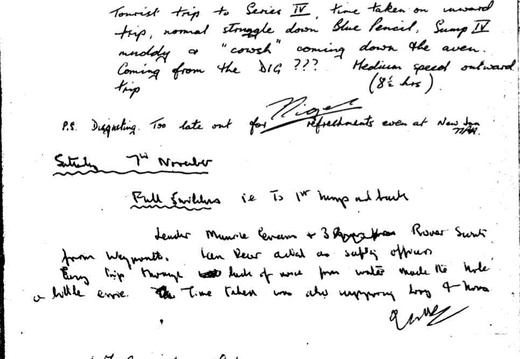 Tourist trip to Series IV, time taken on inward
trip, normal struggle down Blue Pencil, Sump IV
muddy & "cowsh" coming down the aven.
Coming from the DIG ??? Medium speed outward
trip (8½ hrs)
Nigel
P.S. Disgusting. Too late out for refreshments even at New Inn
7th November
i.e. To 1st Sump and back
Leader Maurice + 3 Rover Scouts
from Weymouth. acted as safety officer.
trip through lack of noise from water made the hole
a little eerie. Time taken was also long 4 hours